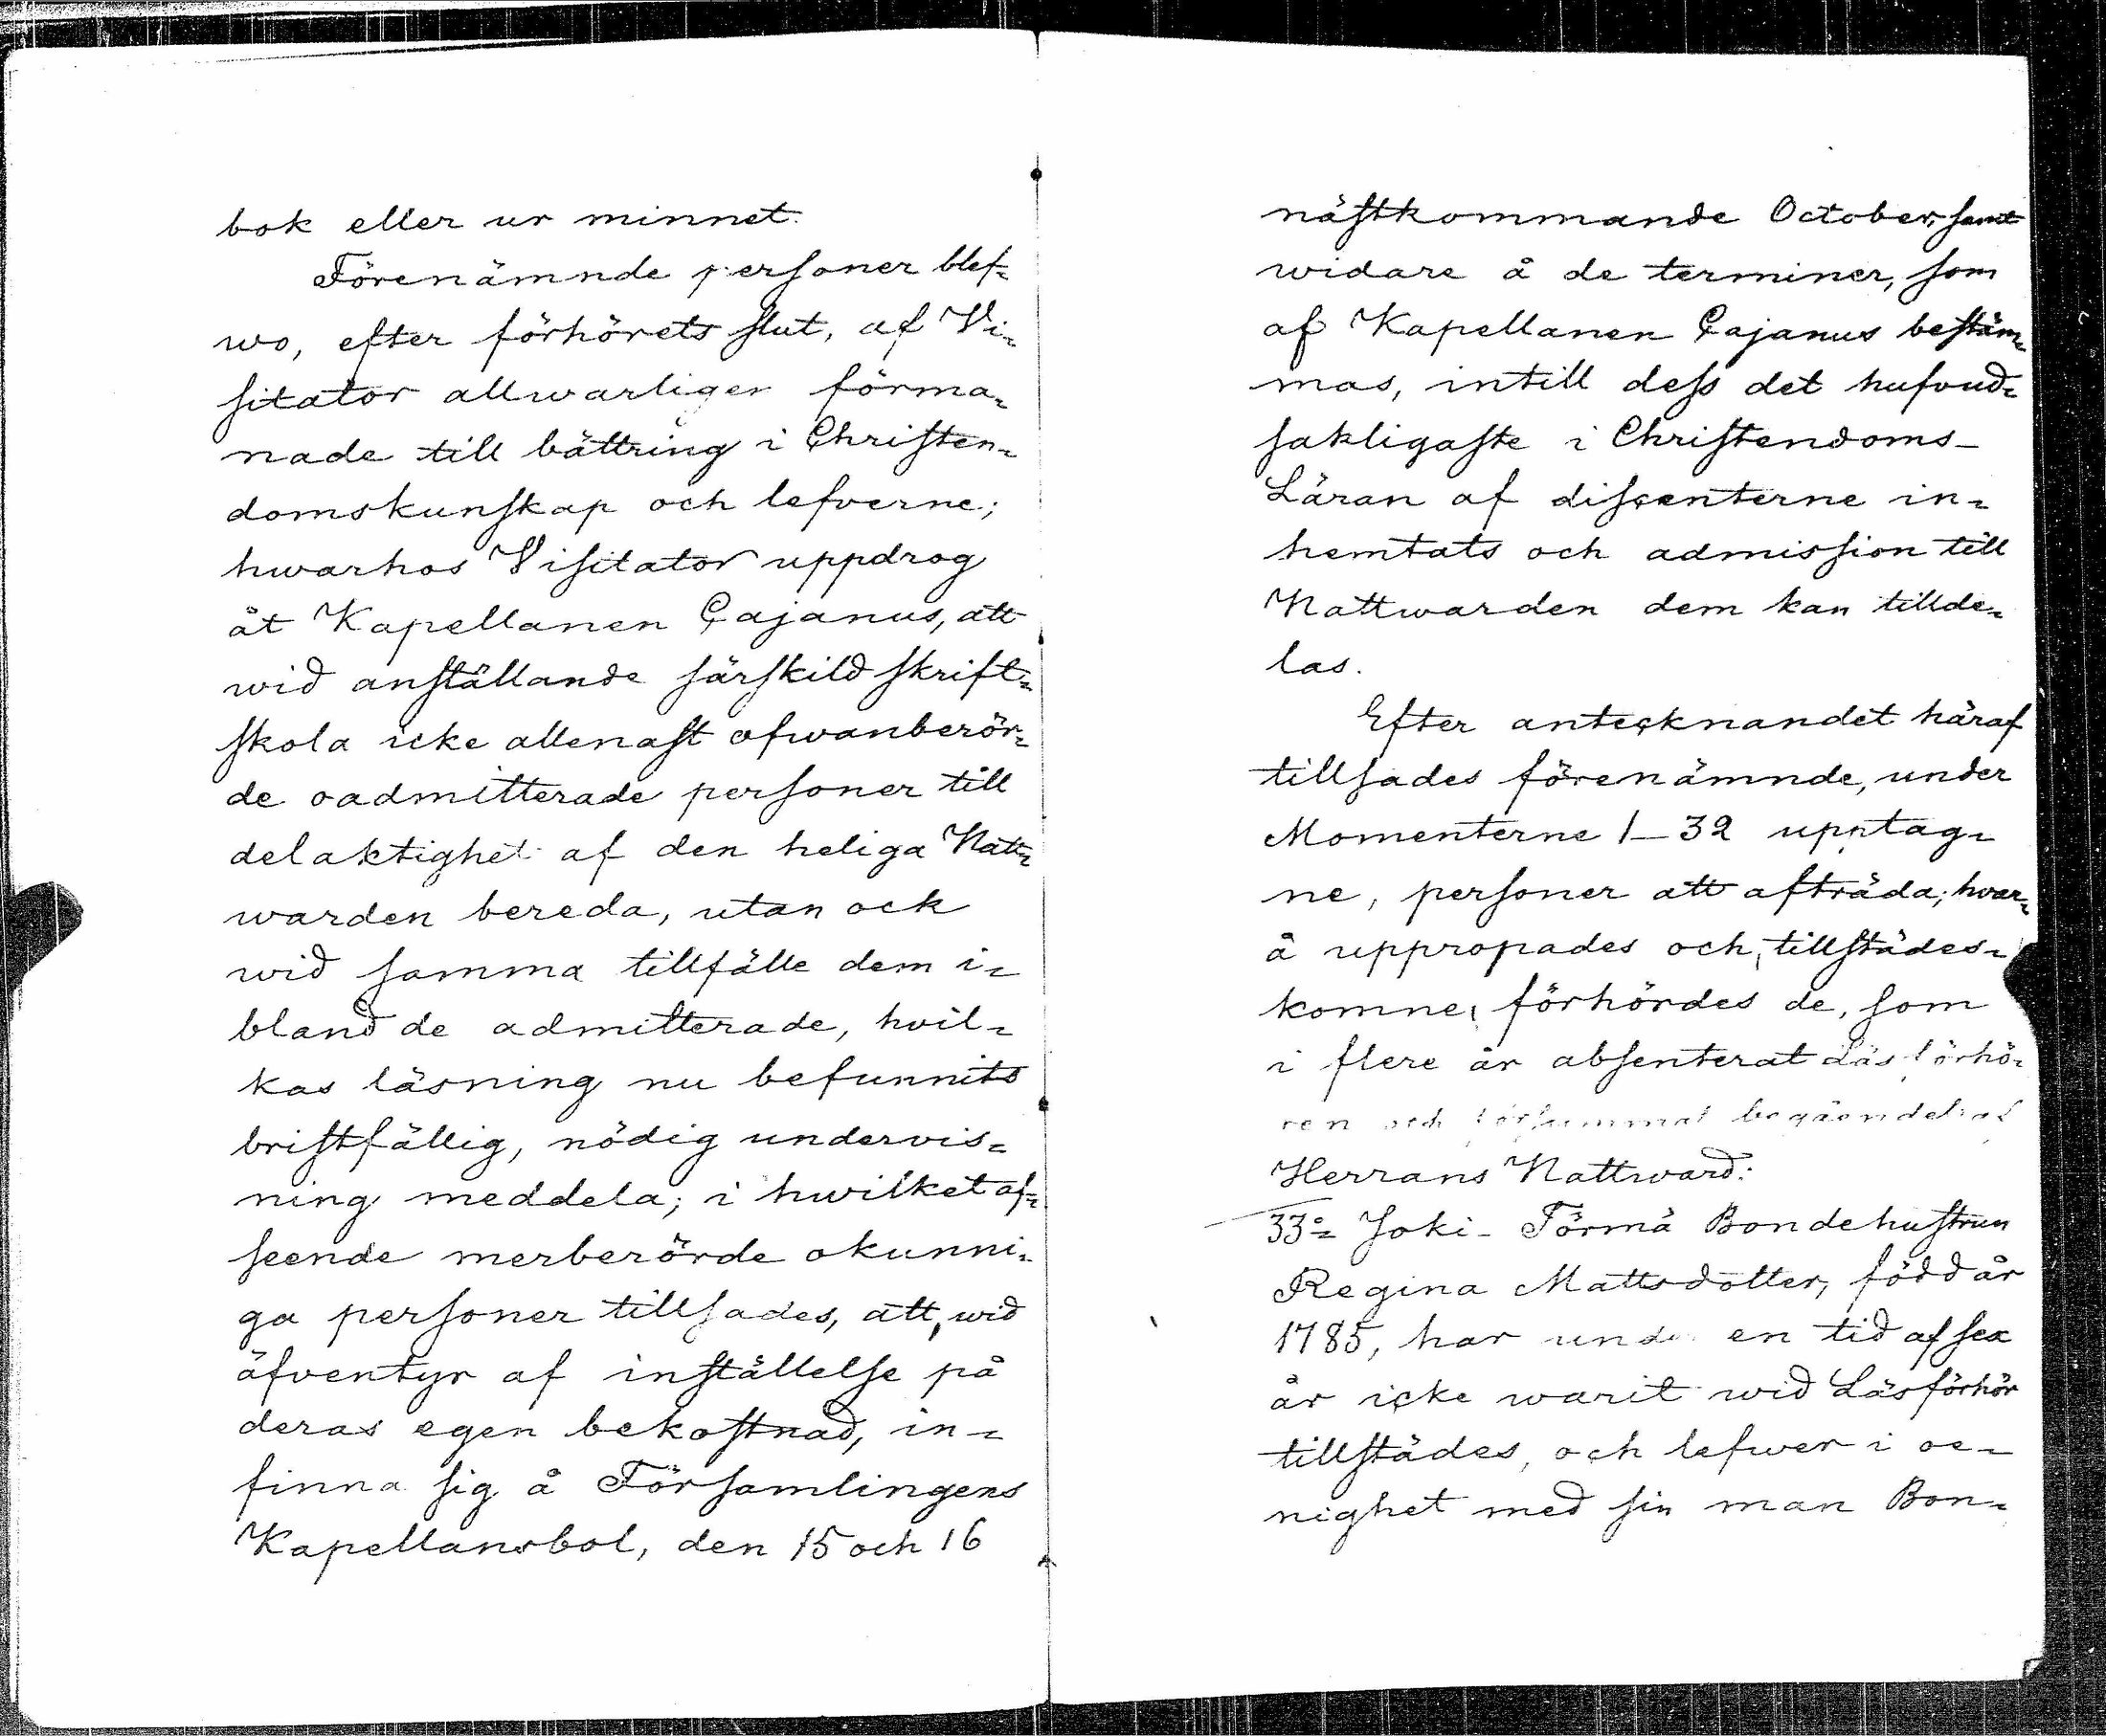 bok eller ur minnet.
Förenämnde personer blef-
wo, efter förhörets slut, af Vi-
sitator allwarligen förma-
nade till bättring i Christen-
domskunskap och lefverne;
hwarhos Visitator uppdrog
åt Kapellanen Cajanus, att
wid anställande särskild skrift-
skola icke allenast ofwanberör-
de oadmitterade personer till
delaktighet af den heliga Natt-
warden bereda, utan ock
wid samma tillfälle dem i-
bland de admitterade, hvil-
kas läsning nu befunnits
bristfällig, nödig undervis-
ning meddela; i hwilket af-
seende merberörde okunni-
ga personer tillsades, att, wid
äfventyr af inställelse på
deras egen bekostnad, in-
finna sig å Församlingens
Kapellansbol, den 15 och 16
nästkommande October, samt
widare å de terminer, som
af Kapellanen Cajanus bestäm-
mas, intill dess det hufvud-
sakligaste i Christendoms-
Läran af discenterne in-
hemtats och admission till
Nattwarden dem kan tillde-
las.
Efter antecknandet häraf
tillsades förenämnde, under
Momenterne 1–32 upptag-
ne, personer att afträda; hvar-
å uppropades och, tillstädes-
komne, förhördes de, som
i flere år absenterat Läsförhö-
ren och försummat begåendet af
Herrans Nattvard:
33:o Joki-Törmä Bondehustrun
Regina Mattsdotter, född år
1785, har under en tid af sex
år icke warit wid Läsförhör
tillstädes, och lefwer i oe-
nighet med sin man Bon-